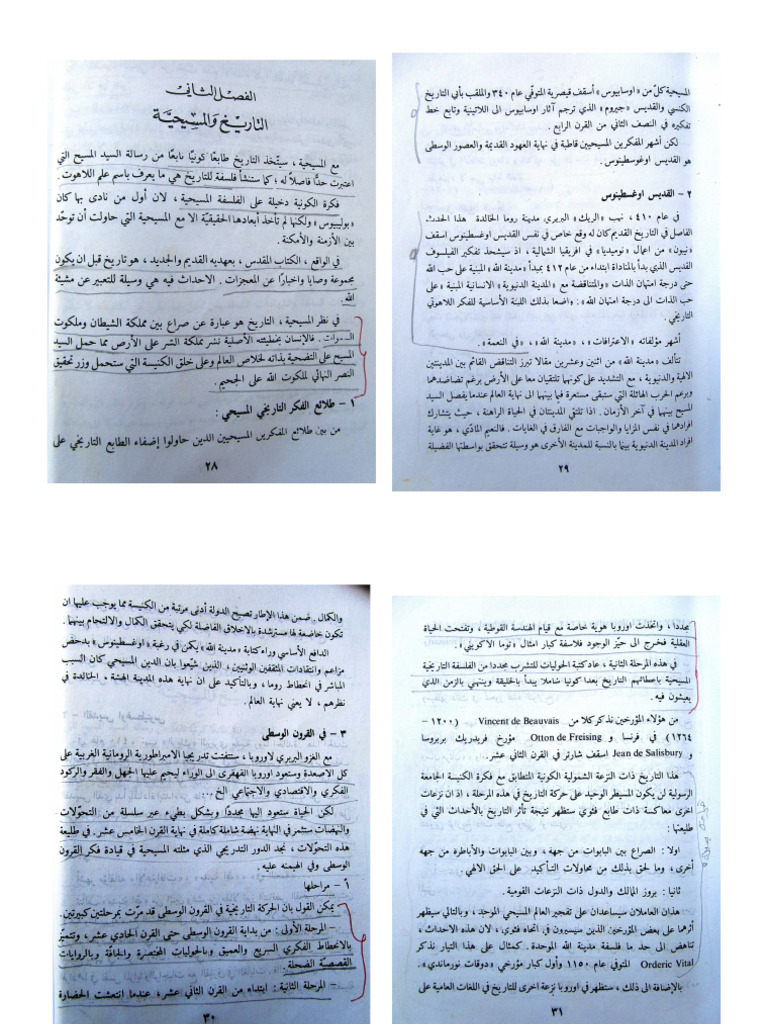 الفصل الثاني
التاريخ والمسيحية
مع المسيحية ، سيتخذ التاريخ طابعًا كونيًا نابعًا من رسالة السيد المسيح التي
اعتبرت حدًّا فاصلاً له ؛ كما ستنشأ فلسفة للتاريخ هي ما يعرف باسم علم اللاهوت .
فكرة الكونية دخيلة على الفلسفة المسيحية ، لان أول من نادى بها كان
«بوليبيوس» ولكنها لم تأخذ أبعادها الحقيقيّة الا مع المسيحية التي حاولت أن توحّد
بين الأزمنة والأمكنة .
في الواقع ، الكتاب المقدس ، بعهديه القديم والجديد ، هو تاريخ قبل ان يكون
مجموعة وصايا واخبارًا عن المعجزات . الاحداث فيه هي وسيلة للتعبير عن مشيئة
الله .
في نظر المسيحية ، التاريخ هو عبارة عن صراع بين مملكة الشيطان وملكوت
فالإنسان بخطيئته الأصلية نشر مملكة الشر على الأرض مما حمل السيد
المسيح على التضحية بذاته لخلاص العالم وعلى خلق الكنيسة التي ستحمل وزر تحقيق
النصر النهائي لملكوت الله على الجحيم .
١ – طلائع الفكر التاريخي المسيحي :
من بين طلائع المفكرين المسيحيين الذين حاولوا إضفاء الطابع التاريخي على
٢٨
المسيحية كلّ من «اوسابيوس» أسقف قيصرية المتوفّي عام ٣٤٠ والملقب بأبي التاريخ
الكنسي والقديس «جيروم» الذي ترجم آثار اوسابيوس الى اللاتينية وتابع خط
تفكيره في النصف الثاني من القرن الرابع .
لكن أشهر المفكرين المسيحيين قاطبة في نهاية العهود القديمة والعصور الوسطى
هو القديس اوغوسطينوس .
٢ – القديس اوغسطينوس
في عام ٤١٠ ، نهب «الريك» البربري مدينة روما الخالدة هذا الحدث
الفاصل في التاريخ القديم كان له وقع خاص في نفس القديس اوغوسطينوس اسقف
من اعمال «نوميديا» في افريقيا الشمالية ، اذ سيشحذ تفكير الفيلسوف
القديس الذي بدأ بالمناداة ابتداء من عام ٤١٢ بمبدأ «مدينة الله» المبنية على حب الله
حتى درجة امتهان الذات «والمتناقضة مع «المدينة الدنيوية» الانسانية المبنية على
حب الذات الى درجة امتهان الله» : واضعا بذلك اللبنة الأساسية للفكر اللاهوتي
التاريخي .
أشهر مؤلفاته «الاعترافات» ، «مدينة الله» ، «في النعمة» .
تتألف «مدينة الله» من اثنين وعشرين مقالا تبرز التناقض القائم بين المدينتين
الالهية والدنيوية ، مع التشديد على كونهما تلتقيان معا على الأرض برغم تضاضدهما
وبرغم الحرب الهائلة التي ستبقى مستعرة فيما بينهما الى نهاية العالم عندما يفصل السيد
المسيح بينهما في آخر الأزمان . اذا تلتقي المدينتان في الحياة الراهنة ، حيث يتشارك
افرادهما في نفس المزايا والواجبات مع الفارق في الغايات . فالنعيم المادّي ، هو غاية
افراد المدينة الدنيوية بينما بالنسبة للمدينة الأخرى هو وسيلة تتحقق بواسطتها الفضيلة
٢٩
والكمال . ضمن هذا الإطار تصبح الدولة أدنى مرتبة من الكنيسة مما يوجب عليها ان
تكون خاضعة لها مسترشدة بالاخلاق الفاضلة لكي يتحقق الكمال والالتحام بينهما .
الدافع الأساسي وراء كتابة «مدينة الله» يكمن في رغبة «اوغسطينوس» بدحض
مزاعم وانتقادات المثقفين الوثنيين ، الذين شيّعوا بان الدين المسيحي كان السبب
المباشر في انحطاط روما ، وبالتأكيد على ان نهاية هذه المدينة الهشة ، الخالدة في
نظرهم ، لا يعني نهاية العالم .
٣ – في القرون الوسطى
مع الغزو البربري لاوروبا ، ستتفتت تدريجيا الامبراطورية الرومانية الغربية على
كل الاصعدة وستعود اوروبا القهقرى الى الوراء ليخيم عليها الجهل والفقر والركود
الفكري والاقتصادي والاجتماعي الخ ...
لكن الحياة ستعود إليها مجددًا وبشكل بطيء عبر سلسلة من التحوّلات
والنهضات ستثمر في النهاية نهضة شاملة كاملة في نهاية القرن الخامس عشر . في طليعة
هذه التحوّلات ، نجد الدور التدريجي الذي مثلته المسيحية في قيادة فكر القرون
الوسطى وفي الهيمنه عليه .
أ – مراحلها
يمكن القول بان الحركة التاريخية في القرون الوسطى قد مرّت بمرحلتين كبيرتين .
– المرحلة الأولى : من بداية القرون الوسطى حتى القرن الحادي عشر ، وتتميّز
بالانحطاط الفكري السريع والعميق وبالحوليات المختصرة والجافّة وبالروايات
القصصيّة الضحلة .
– المرحلة الثانية : ابتداء من القرن الثاني عشر، عندما انتعشت الحضارة
٣٠
مجددا ، واتخذت اوروبا هوية خاصة مع قيام الهندسة القوطية ، وتفتحت الحياة
العقلية فخرج الى حيّز الوجود فلاسفة كبار امثال «توما الاكويني» .
في هذه المرحلة الثانية ، عاد كتبة الحوليات للتشرب مجددا من الفلسفة التاريخية
المسيحية باعطائهم التاريخ بعدا كونيا شاملا يبدأ بالخليقة وينتهي بالزمن الذي
يعيشون فيه .
من هؤلاء المؤرخين نذكر كلا من Vincent de Beauvais (١٢٠٠ –
١٢٦٤) في فرنسا و Otton de Freising مؤرخ فريدريك بربروسا
و Jean de Salisbury اسقف شارتر في القرن الثاني عشر .
هذا التاريخ ذات النزعة الشمولية الكونية المتطابق مع فكرة الكنيسة الجامعة
الرسولية لن يكون المسيطر الوحيد على حركة التاريخ في هذه المرحلة ، اذ ان نزعات
اخرى معاكسة ذات طابع فئوي ستظهر نتيجة تأثر التاريخ بالأحداث التي في
طليعتها :
اولا : الصراع بين البابوات من جهة ، وبين البابوات والأباطرة من جهة
أخرى ، وما لحق بذلك من محاولات التأكيد على الحق الالهي .
ثانيا : بروز الممالك والدول ذات النزعات القومية .
هذان العاملان سيساعدان على تفجير العالم المسيحي الموحد ، وبالتالي سيظهر
أثرهما على بعض المؤرخين الذين سيسيرون في اتجاه آخر ، لان هذه الاحداث ،
تناهض الى حد ما فلسفة مدينة الله الموحدة . كمثال على هذا التيار نذكر
Orderic Vital المتوفي عام ١١٥٠ وأول كبار مؤرخي «دوقات نورماندي» .
بالإضافة الى ذلك ، ستظهر في اوروبا نزعة اخرى للتاريخ في اللغات العامية على
٣١